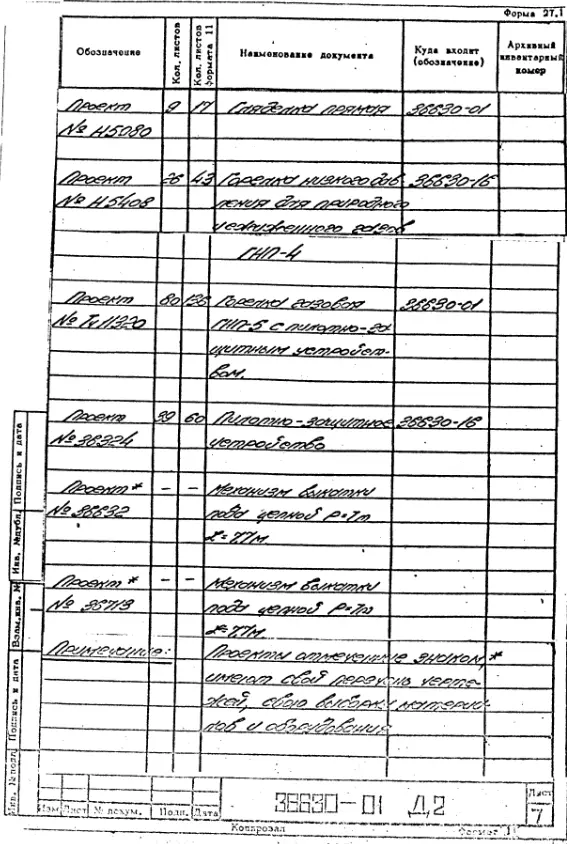 Форма 27.1
Обозначение Кол. листов Кол. листов формата 11 Наименование документа Куда входит (обозначение) Архивный инвентарный номер
Проект 9 17 Гляделка прямая 36630-01
№ Н5080
Проект 26 43 Горелка низкого дав 36630-16
№ Н5408 ления для природного
неохлажденного газов
ГНП-4
Проект 80 136 Горелка газовая 36630-01
№ Ту11320 ГНП-5 с пилотно-за
щитным устройст-
вом.
Проект 39 60 Пилотно-защитное 36630-16
№36324 устройство
Проект* - - Механизм выкатки
№36632 пода цепной Р=7т
L=7,7м
Проект* - - Механизм выкатки
№ 36713 пода цепной Р=7т
L=7,7м
Примечание: Проекты отмеченные знаком *
имеют свой перечень черте-
жей, свою выборку материа-
лов и оборудования
Инв. №подл. Подпись и дата Взам.инв. № Инв. №дубл. Подпись и дата
Изм Лист № докум. Подп. Дата
36630-01 Д2
Лист
7
Копировал Формат 11